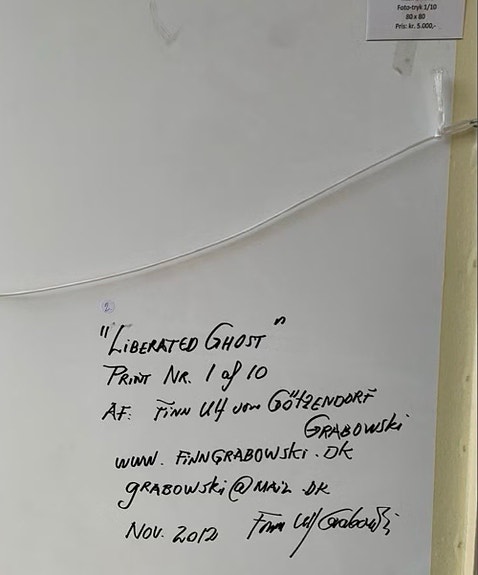 Foto-tryk 1/10
80 x 80
Pris: kr. 5.000,-
2
"LIBERATED GHOST"
PRINT NR. 1 af 10
AF: FINN Ulf von GÖTZENDORF
GRABOWSKi
www.FiNNGRABOWSKi.DK
GRABOWSKi@MAIL.DK
NOV. 2012 Finn Ulf Grabowski